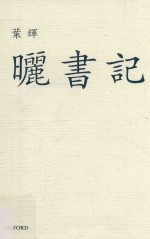 葉輝
曬書記
OXFORD